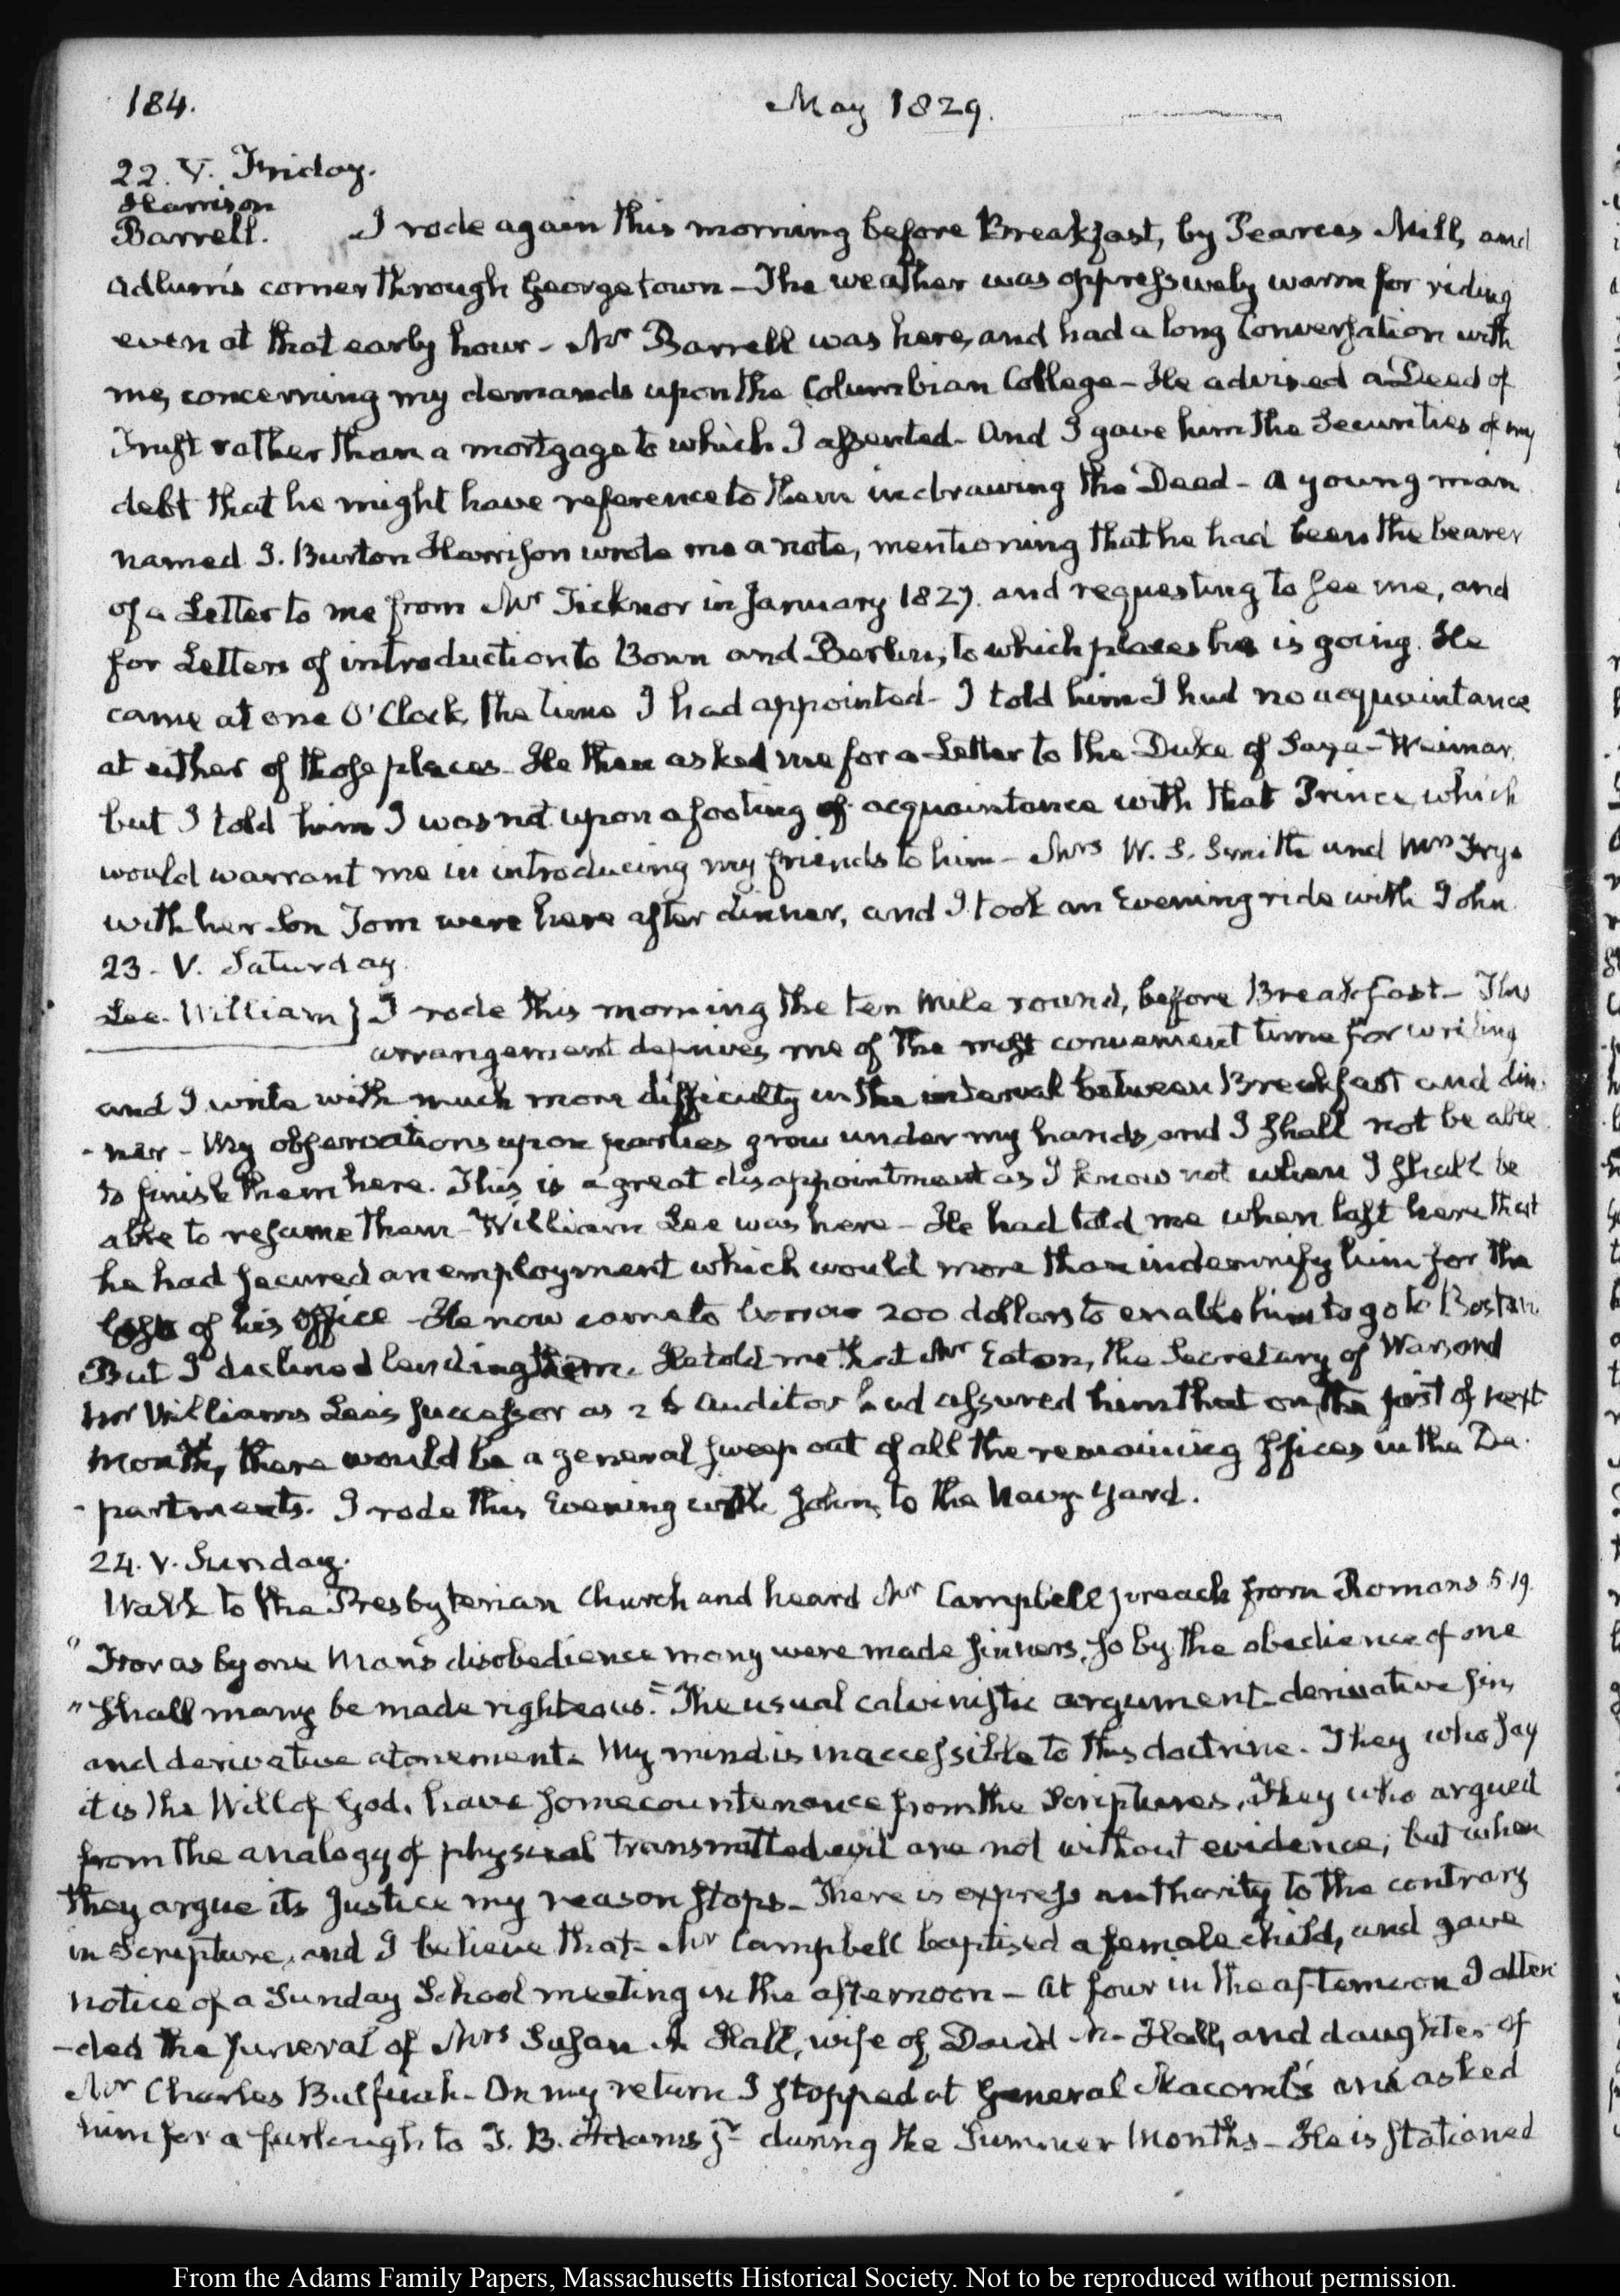 184.
May 1829.
22. V. Friday.
Harrison
Barrell.
I rode again this morning before Breakfast, by Pearces Mill, and
Adlum's corner through Georgetown – The weather was oppressively warm for riding
even at that early hour – Mr Barrell was here, and had a long Conversation with
me, concerning my demands upon the Columbian College – He advised a Deed of
Trust rather than a mortgage to which I assented – And I gave him the Securities of my
debt that he might have reference to them in drawing the Deed – A young man
named J. Burton Harrison wrote me a note, mentioning that he had been the bearer
of a Letter to me from Mr Ticknor in January 1827. and requesting to see me, and
for Letters of introduction to Bonn and Berlin, to which places he is going. He
came at one O'Clock, the time I had appointed – I told him I had no acquaintance
at either of those places – He then asked me for a Letter to the Duke of Saxe-Weimar.
but I told him I was not upon a footing of acquaintance with that Prince, which
would warrant me in introducing my friends to him – Mrs W. S. Smith and Mrs Frye
with her Son Tom were here after dinner, and I took an Evening ride with John.
23. V. Saturday.
Lee. William} I rode this morning the ten mile round, before Breakfast – This
arrangement deprives me of the most convenient time for writing
and I write with much more difficulty in the interval between Breakfast and din-
-ner – My observations upon parties grow under my hands, and I shall not be able
to finish them here. This is a great disappointment as I know not when I shall be
able to resume them – William Lee was here – He had told me when last here that
he had secured an employment which would more than indemnify him for the
loss of his Office – He now came to borrow 200 dollars to enable him to go to Boston.
But I declined lending them. He told me that Mr Eaton, the Secretary of War, and
Mr Williams Lee's successor as 2d Auditor had assured him that on the first of next
month, there would be a general sweep out of all the remaining Offices in the De-
-partments. I rode this Evening with John to the Navy-Yard.
24. V. Sunday.
Walk to the Presbyterian Church and heard Mr Campbell preach from Romans 5.19.
"For as by one Man's disobedience many were made sinners, so by the obedience of one
"shall many be made righteous." The usual calvinistic argument – derivative sin,
and derivative atonement. My mind is inaccessible to this doctrine. They who say
it is the Will of God, have some countenance from the Scriptures, They who argued
from the analogy of physical transmitted evil are not without evidence; but when
they argue its Justice my reason stops – There is express authority to the contrary
in Scripture, and I believe that – Mr Campbell baptised a female child, and gave
notice of a Sunday School meeting in the afternoon – At four in the afternoon I atten-
-ded the funeral of Mrs Susan A Hall, wife of David A. Hall, and daughter of
Mr Charles Bulfinch – On my return I stopped at General Macomb's and asked
him for a furlough to T. B. Adams jr during the Summer Months – He is stationed
From the Adams Family Papers, Massachusetts Historical Society. Not to be reproduced without permission.